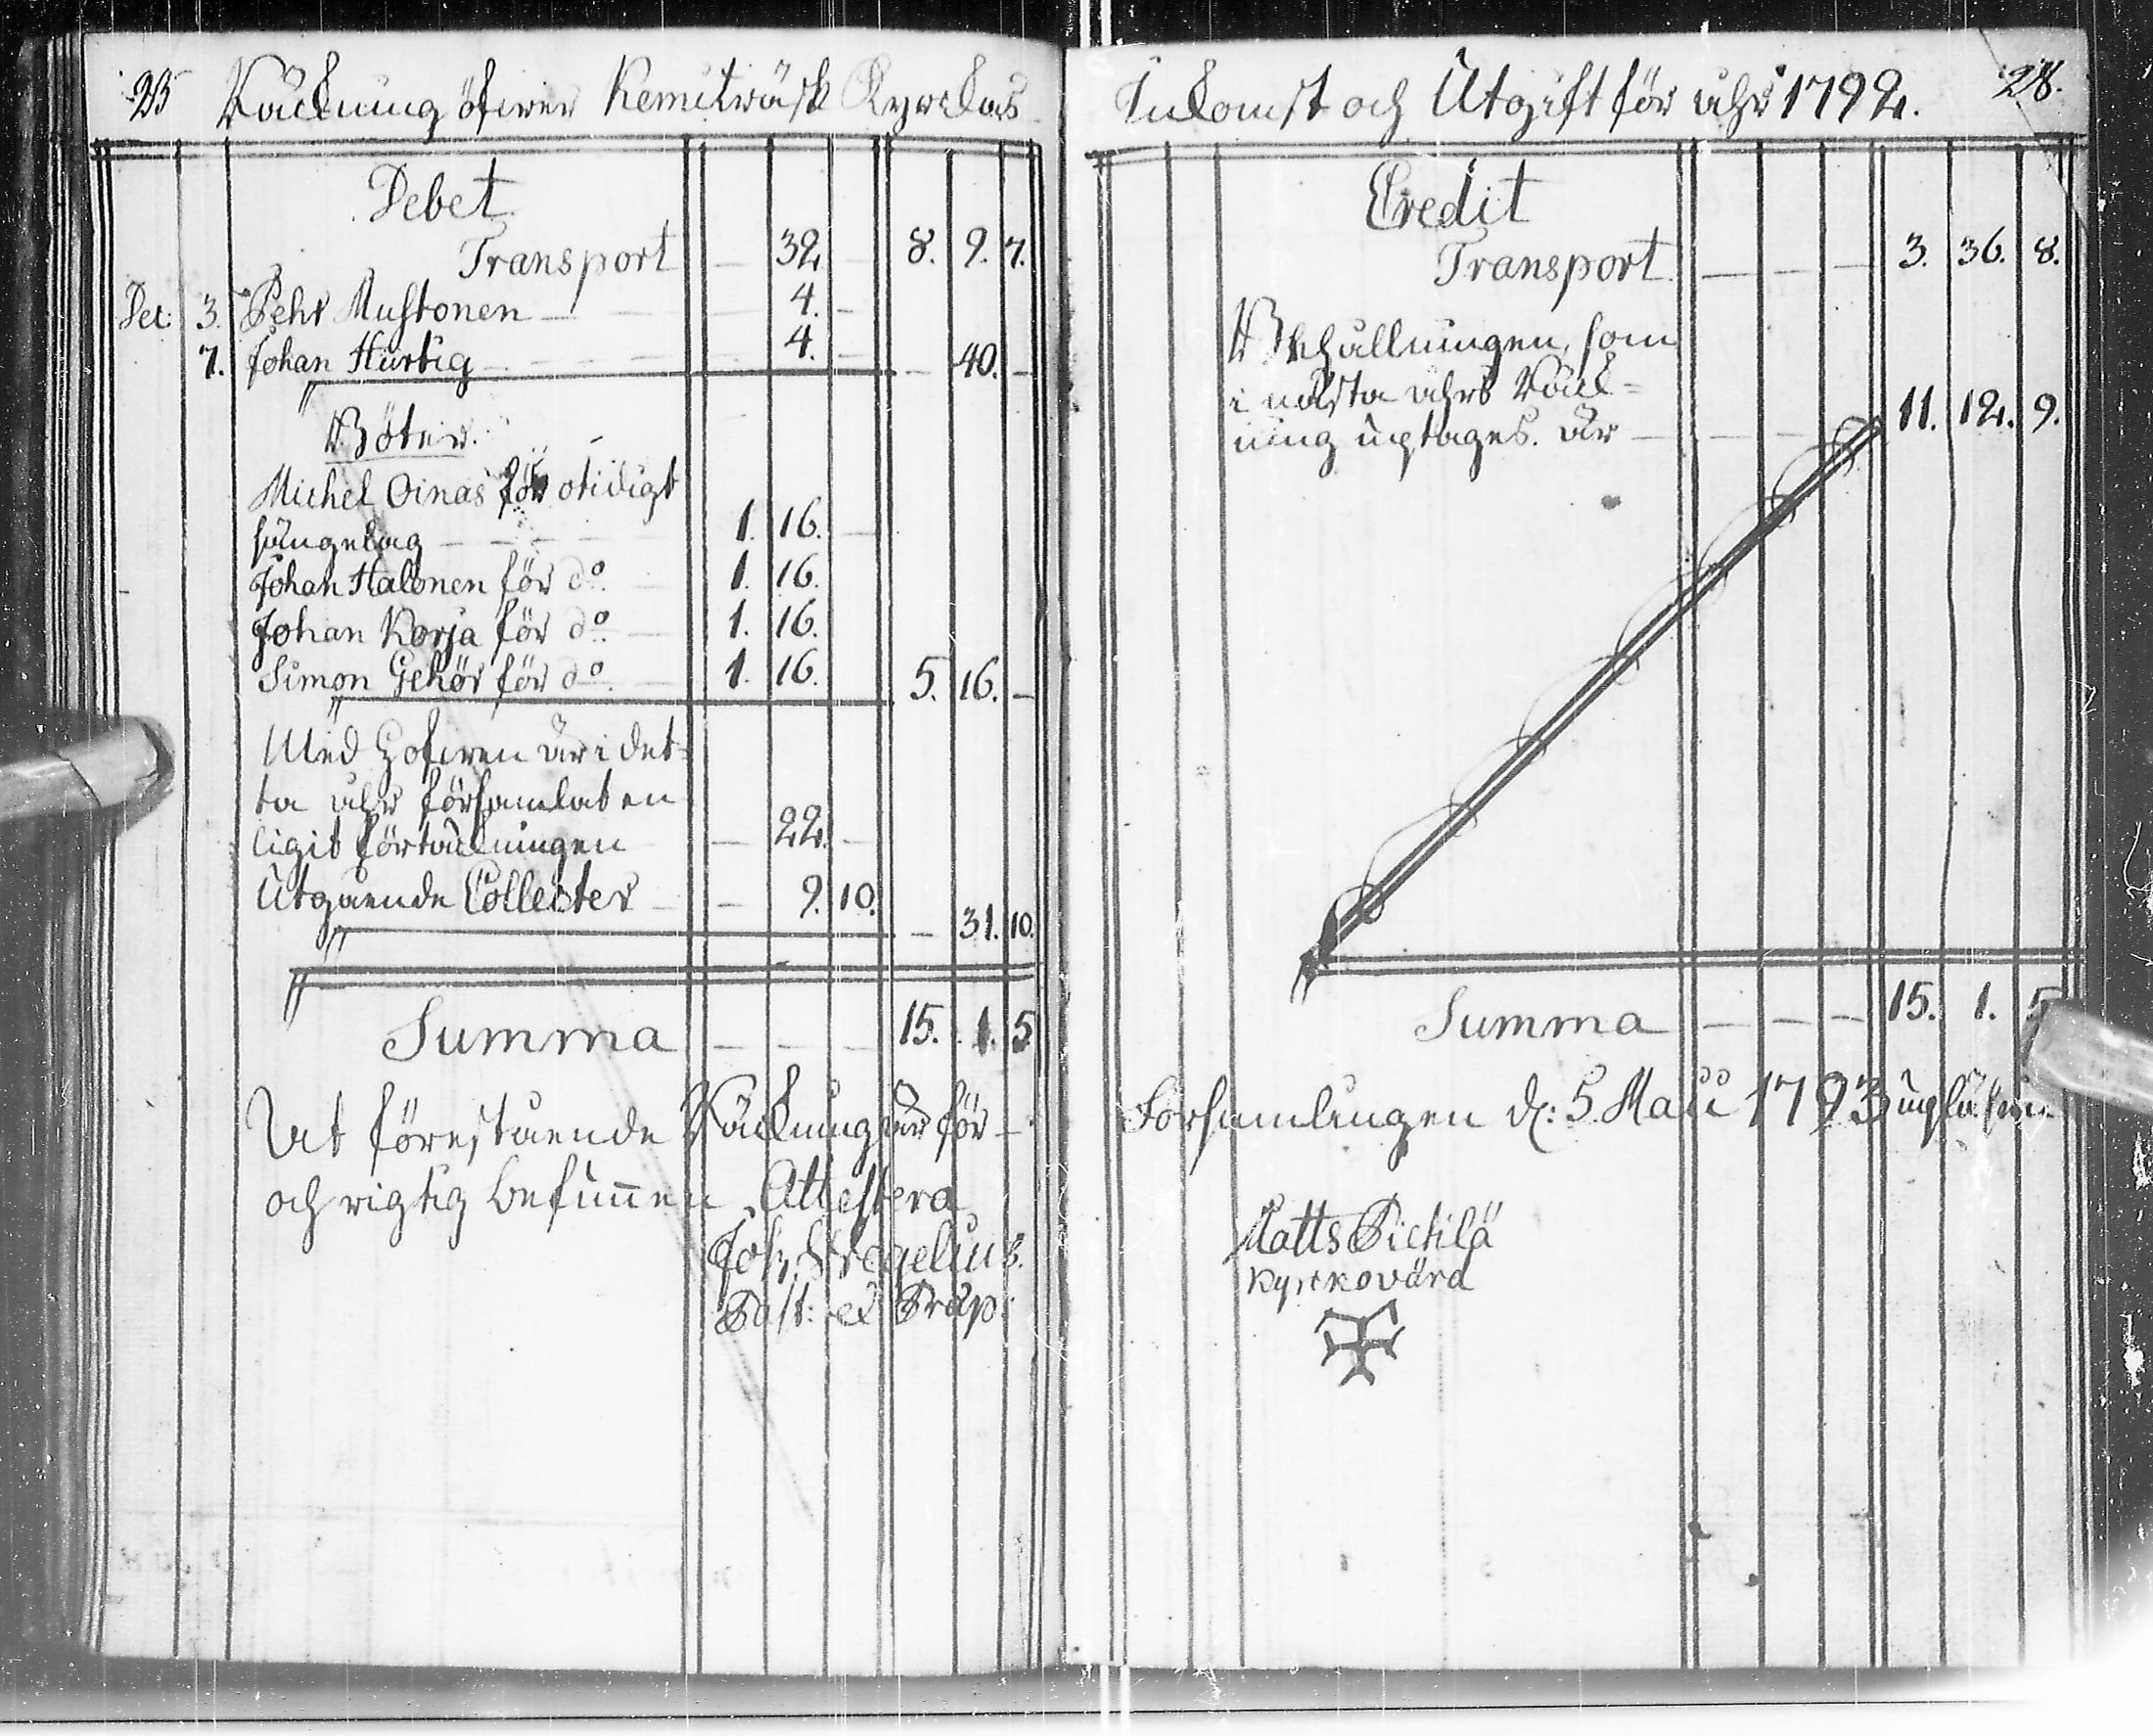 25 Räckning öfwer Kemiträsk Kyrckas
Debet
Transport — 32. — 8. 9. 7.
Dec: 3. Pehr Mustonen — 4. —
7. Johan Hurtig — 4. — — 40. —
Böter.
Michel Oinas för otidigt
sängelag — 1. 16. —
Johan Halonen för do. — 1. 16.
Johan Korja för do. — 1. 16.
Simon Gehör för do. — 1. 16. 5. 16. —
Med Hofwen är i det-
ta åhr församlat en
ligit förtäckningen — 22. —
Utgående Collecter — 9. 10. — 31. 10.
Summa — — — 15. 1. 5
At förestående Räckning är för
och rigtig befunnen Attestera
Joh. Wegelius.
Past: et Præp:
Inkomst och Utgift för åhr 1792. 28.
Credit
Transport. — — — 3. 36. 8.
Behållningen, som
i nästa åhrs Räck=
ning uptages. är — — — 11. 12. 9.
Summa — — — 15. 1. 5
Församlingen d: 5. Maii 1793 upläsen
Matts Pietilä
Kyrckovärd